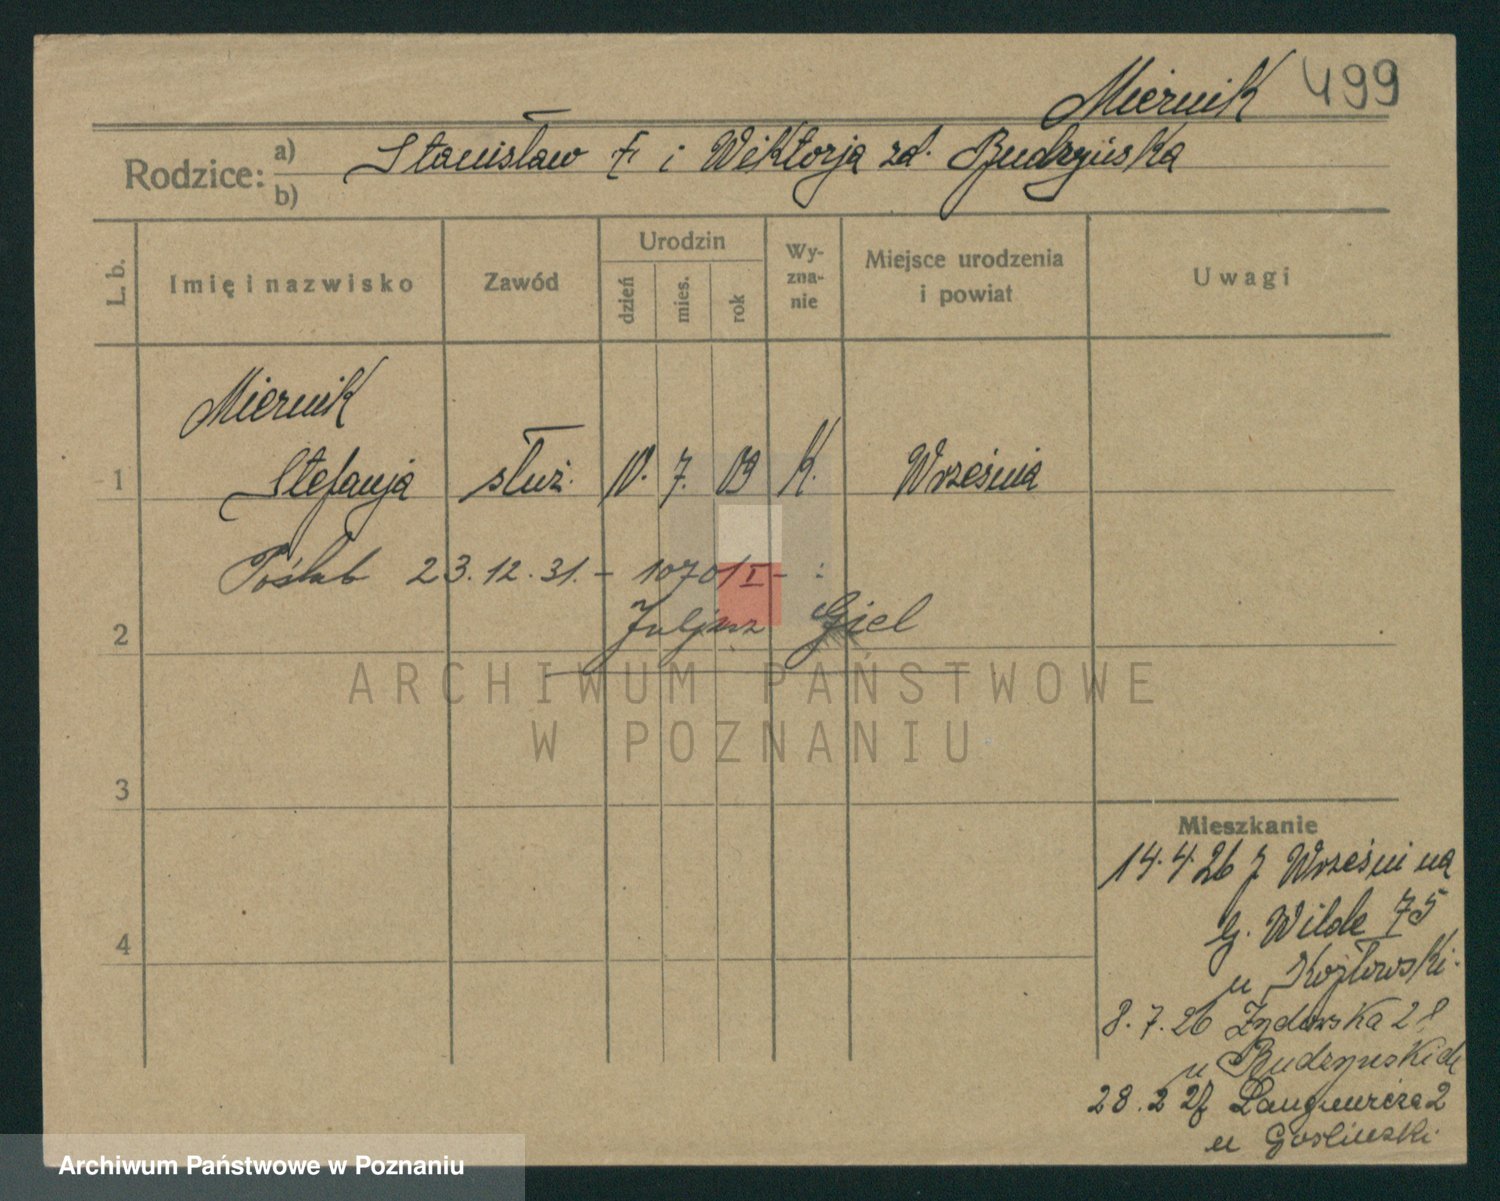 Miernik 499
Rodzice: a) b) Stanisław i Wiktorja zd. Budzyńska
L. b.
Imię i nazwisko
Zawód
Urodzin
dzień
mies.
rok
Wy-
zna-
nie
Miejsce urodzenia
i powiat
Uwagi
Miernik
1 Stefanja służ. 10. 7. 09 K. Września
Poślub 23.12.31. - 10701 I - :
2 Juljusz Giel
ARCHIWUM PAŃSTWOWE
W POZNANIU
3
Mieszkanie
14.4.26 z Wrześni na
G. Wilde 75
4
u Kozłowski.
8.7.26 Żydowska 28
u Budzyńskich
28.2 27 Langiewicza 2
u Goslinski
Archiwum Państwowe w Poznaniu